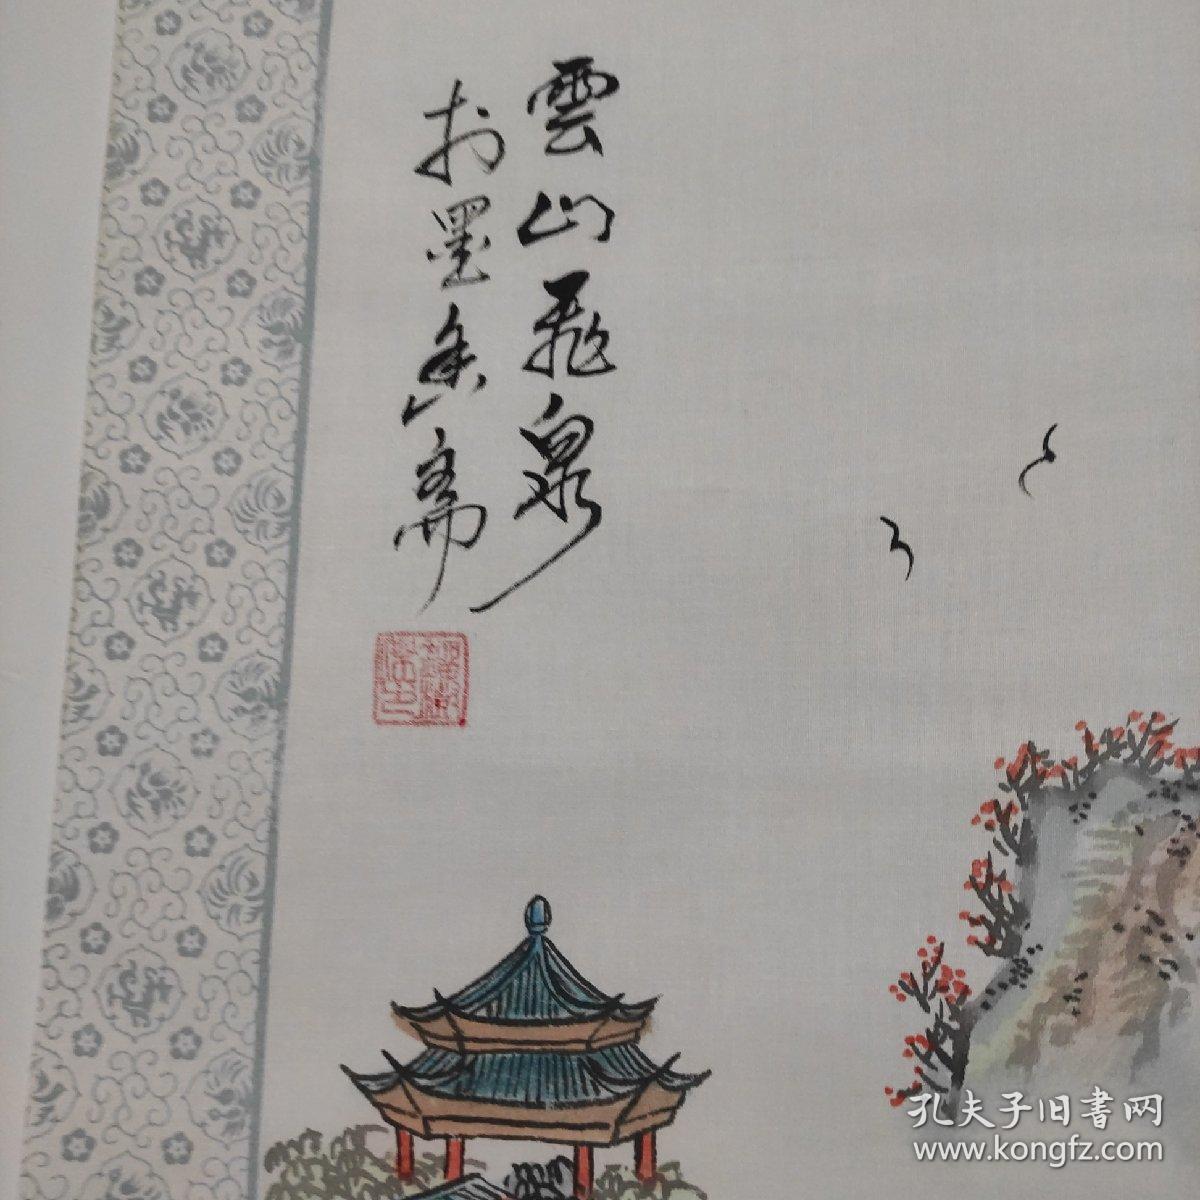 雲山飛泉
於墨香齋
孔夫子旧書网
www.kongfz.com